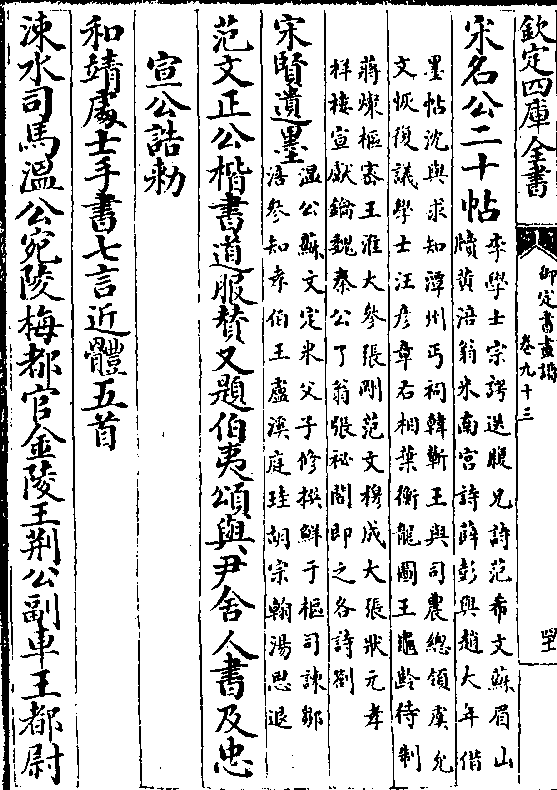 欽定四庫全書
御定書畫譜
卷九十三
宋名公二十帖
李學士宗諤送賑兄詩范希文蘇眉山
牘黄涪翁米南宮詩薛彭與趙大年偕
墨帖沈與求知潭州丐祠韓蘄王與司農總領虞允
文恢復議學士汪彦章右相葉衡龍圖王龜齡待制
蔣燦樞密王淮大參張剛范文穆成大張狀元孝
祥樓宣獻鑰魏秦公了翁張祕閣即之各詩劄
宋賢遺墨
溫公蘇文定米父子修撰鮮于樞司諫鄒
浯參知孝伯王盧溪庭珪胡宗翰湯思退
范文正公楷書道服贊又題伯夷頌與尹舍人書及忠
宣公誥勅
和靖處士手書七言近體五首
涑水司馬溫公宛陵梅都官金陵王荆公副車王都尉